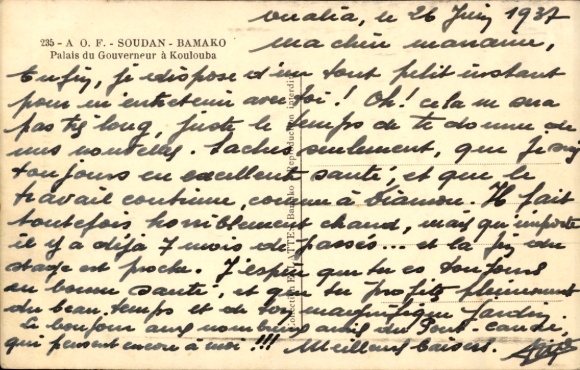 Oualia, le 26 Juin 1937
235 - A. O. F. - SOUDAN - BAMAKO
Palais du Gouverneur à Koulouba
Ma chère maman,
Enfin, je dispose d'un tout petit instant
pour m'entretenir avec toi! Oh! cela ne sera
pas très long, juste le temps de te donner de
mes nouvelles. Saches seulement, que je suis
toujours en excellent santé, et que le
travail continue, comme à Diamou. Il fait
toutefois horriblement chaud, mais qu'importe
il y a déjà 7 mois de passés... et la fin du
stage est proche. J'espère que tu es toujours
en bonne santé, et que tu profites pleinement
du beau temps et de ton magnifique jardin.
Le bonjour aux nombreux amis du Pont-
qui pensent encore à moi!!! Meilleurs baisers.
Collection Bamako - Reproduction interdite